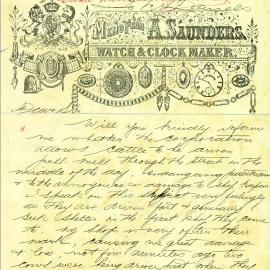 A. SAUNDERS,
WATCH & CLOCK MAKER
Dear Sir
Will you kindly inform
me whether the corporation
allows cattle to be driven
pell mell through the street in the
middle of the day. Endangering
& to the annoyance & damage to shop keepers
I speak on the
as they are driven past &
seek shelter in the first shop they come
to, my shop is very often their
mark, causing me great damage
& loss, not five minutes ago two
cows were being driven past when they